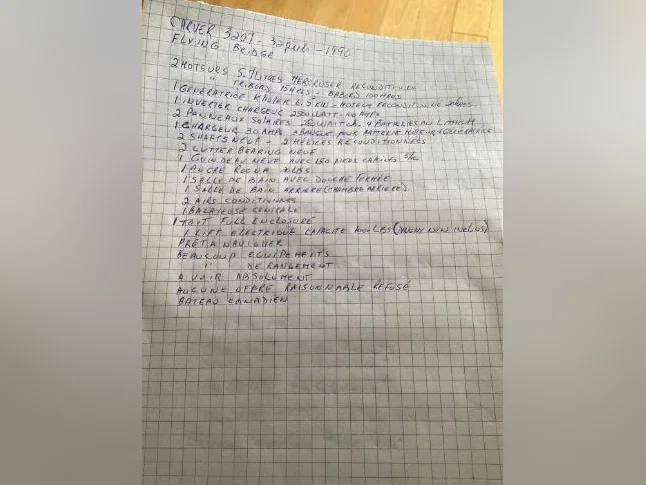 CARVER 3207 - 32 pieds - 1990
FLYING BRIDGE
2 MOTEURS 5.7 LITRES MERCRUISER RECONDITIONN
" TRIBORD 15 HRES - BABORD 100 HRES
1 GÉNÉRATRICE KHOLER 6.5 KW - MOTEUR RECONDITIONNÉ
1 INVERTER CHARGEUR 2500 WATT - 110 AMPS
2 PANNEAUX SOLAIRES WATT - 4 BATTERIES AU LITHIUM
1 CHARGEUR 30 AMPS 3 BANQUE POUR BATTERIE MOTEUR + GÉNÉRATRICE
2 SHAFTS NEUF - 2 HELICES RECONDITIONNEES
2 CUTTER BEARING NEUF
1 GUINDEAU NEUF AVEC 150 PIEDS CHAINE S/S
1 ANCRE ROCNA LBS
1 SALLE DE BAIN AVEC DOUCHE FERMÉE
1 SALLE DE BAIN ARRIERE (CHAMBRE ARRIERE)
2 AIRS CONDITIONNÉS
1 BALAYEUSE CENTRALE
1 TOIT FULL ENCLOSURE
1 LIFT ELECTRIQUE CAPACITÉ LBS (DINGHY NON INCLUS)
PRÊT A NAVIGUER
BEAUCOUP EQUIPEMENTS
" DE RANGEMENT
A VOIR ABSOLUMENT
AUCUNE OFFRE RAISONNABLE REFUSÉ
BATEAU CANADIEN